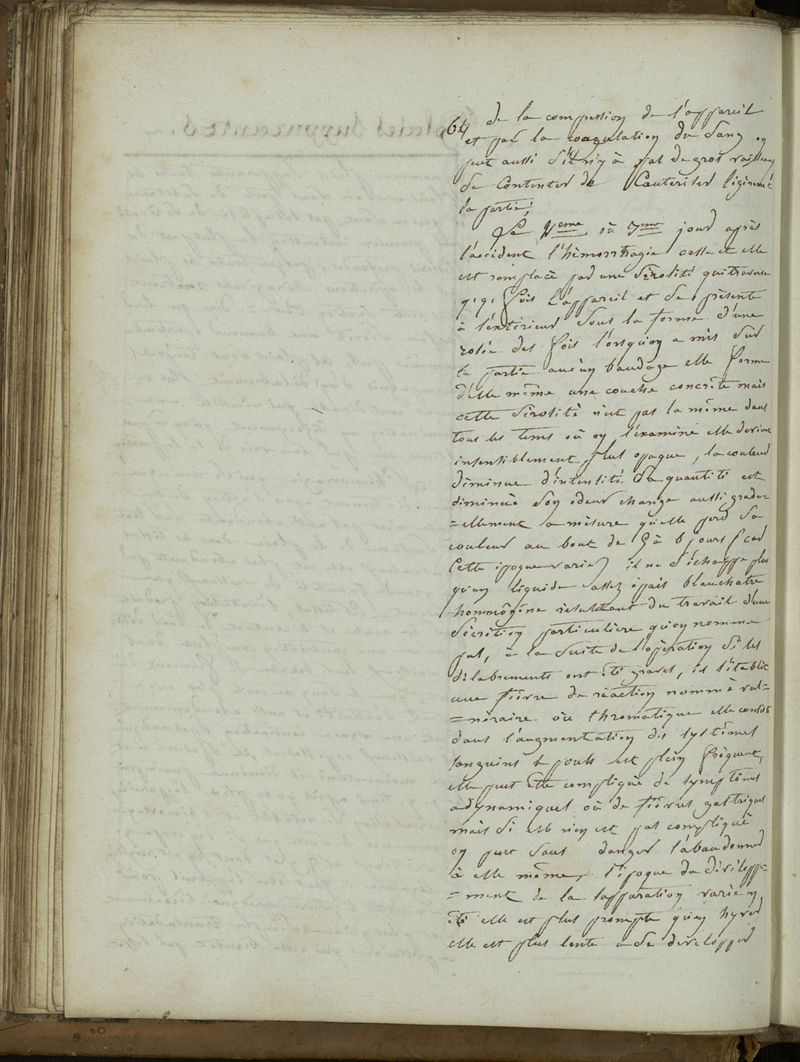 64 de la compression de l'appareil
et par la coagulation du Sang on
peut aussi S'il n'y à pas de gros vaisseaux
Se Contenter de Cauteriser légérem.t
la partie;
Le eme où 7eme jour après
l'accident l'hémorrhagie cesse et elle
est remplacé par une Sérosité qui traverse
q.q. fois l'appareil et Se présente
à l'extérieur Sous la forme d'une
rosée des fois lorsqu'on a mis Sur
la partie aucun bandage elle forme
d'elle même une couche concrète mais
cette Sérosité n'est pas la même dans
tous les tems où on l'examine elle devient
insensiblement plus opaque, la couleur
diminue d'intensité Sa quantité est
diminuè Son odeur change aussi gradu-
=ellement à mésure qu'elle perd Sa
couleur au bout de 5 à 6 jours (car
Cette époque varie) il ne S'échappe plus
qu'un liquide assez épais blanchatre
hommôgène résultant du travail d'une
Sécrétion particulière qu'on nomme
pus, à la Suite de l'opération Si les
délabrements ont été graves, il s'établit
une fièvre de réaction nommè vul-
=néraire où thromatique elle consiste
dans l'augmentation des systèmes
sanguins le pouls est plein fréquent,
elle peut être compliquée de symptômes
adynamiques où de fièvres gastriques
mais Si elle n'en est pas compliquè
on peut Sans danger l'abandonner
à elle même, l'époque du développ-
=ment de la Supparation varie en
été elle est plus prompte qu'en hyver
elle est plus lente à Se développer